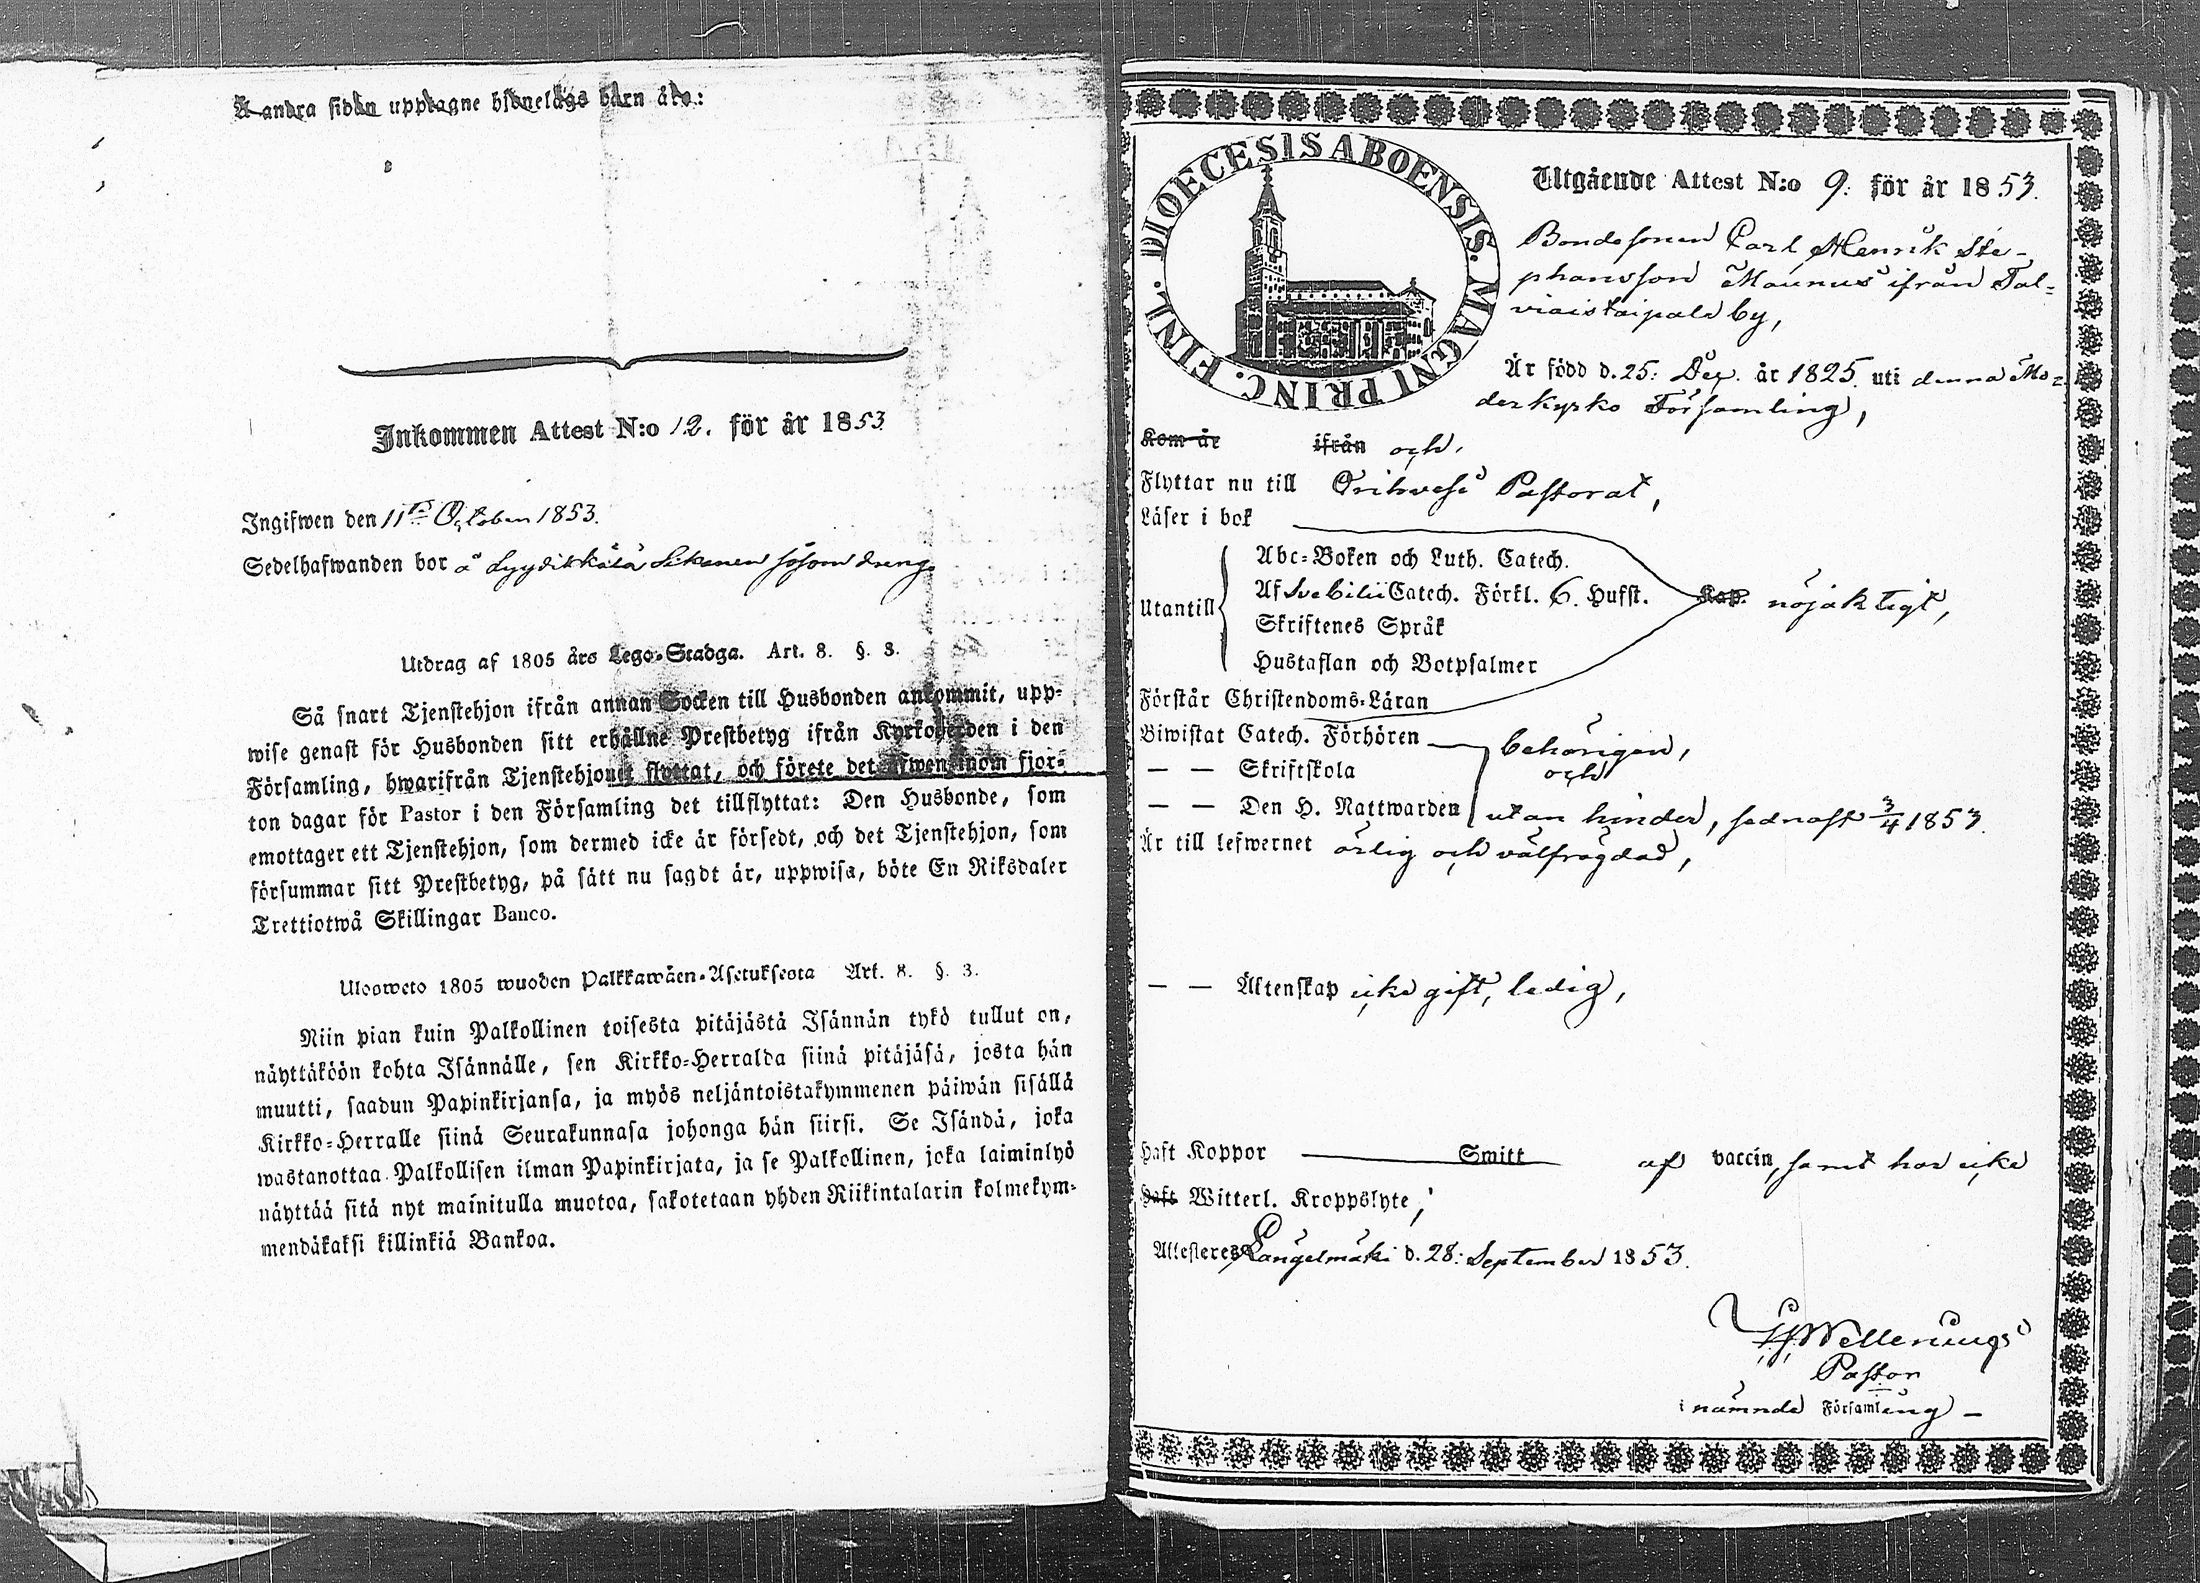 Å andra sidan upptagne hionelags barn äro:
Inkommen Attest N:o 12. för år 1853
Ingifwen den 11te October 1853.
Sedelhafwanden bor å Lyydikkälä såsom dreng
Utdrag af 1805 års Lego-Stadga. Art. 8. §. 3.
Så snart Tjenstehjon ifrån annan Socken till Husbonden ankommit, upp-
wise genast för Husbonden sitt erhållne Prestbetyg ifrån Kyrkoherden i den
Församling, hwarifrån Tjenstehjonet flyttat, och förete det äfwen inom fjor-
ton dagar för Pastor i den Församling det tillflyttat: Den Husbonde, som
emottager ett Tjenstehjon, som dermed icke är försedt, och det Tjenstehjon, som
försummar sitt Prestbetyg, på sätt nu sagdt är, uppwisa, böte En Riksdaler
Trettiotwå Skillingar Banco.
Ulosweto 1805 wuoden Palkkawäen-Asetuksesta Art. 8. §. 3.
Niin pian kuin Palkollinen toisesta pitäjästä Isännän tykö tullut on,
näyttäköön kohta Isännälle, sen Kirkko-Herralda siinä pitäjäsä, josta hän
muutti, saadun Papinkirjansa, ja myös neljäntoistakymmenen päiwän sisällä
Kirkko-Herralle siinä Seurakunnasa johonga hän siirsi. Se Isändä, joka
wastanottaa Palkollisen ilman Papinkirjata, ja se Palkollinen, joka laiminlyö
näyttää sitä nyt mainitulla muotoa, sakotetaan yhden Riikintalarin kolmekym-
mendäkaksi killinkiä Bankoa.
DIOECESIS ABOENSIS. MAGNI PRINC. FINL.
Utgående Attest N:o 9. för år 1853.
Bondesonen Carl Henrik Ste-
phansson Maunus ifrån Tal-
viaistaipale by,
Är född d. 25: Dec. år 1825. uti denna Mo-
derkyrko Församling,
Kom år ifrån och
Flyttar nu till Orihvesi Pastorat,
Läser i bok
Utantill
Abc-Boken och Luth. Catech.
Af Svebilii Catech. Förkl. 6. Hufst. Kap. nöjaktigt,
Skriftenes Språk
Hustaflan och Botpsalmer
Förstår Christendoms-Läran
Biwistat Catech. Förhören behörigen,
— — Skriftskola och
— — Den H. Nattwarden utan hinder, sednast 3/4 1853.
Är till lefwernet ärlig och välfrägdad,
— — Äktenskap icke gift, ledig,
Haft Koppor Smitt af vaccin, samt har icke
Haft Witterl. Kroppslyte,
Attesteres Längelmäki d. 28: September 1853.
Pastor
i nämnde Församling